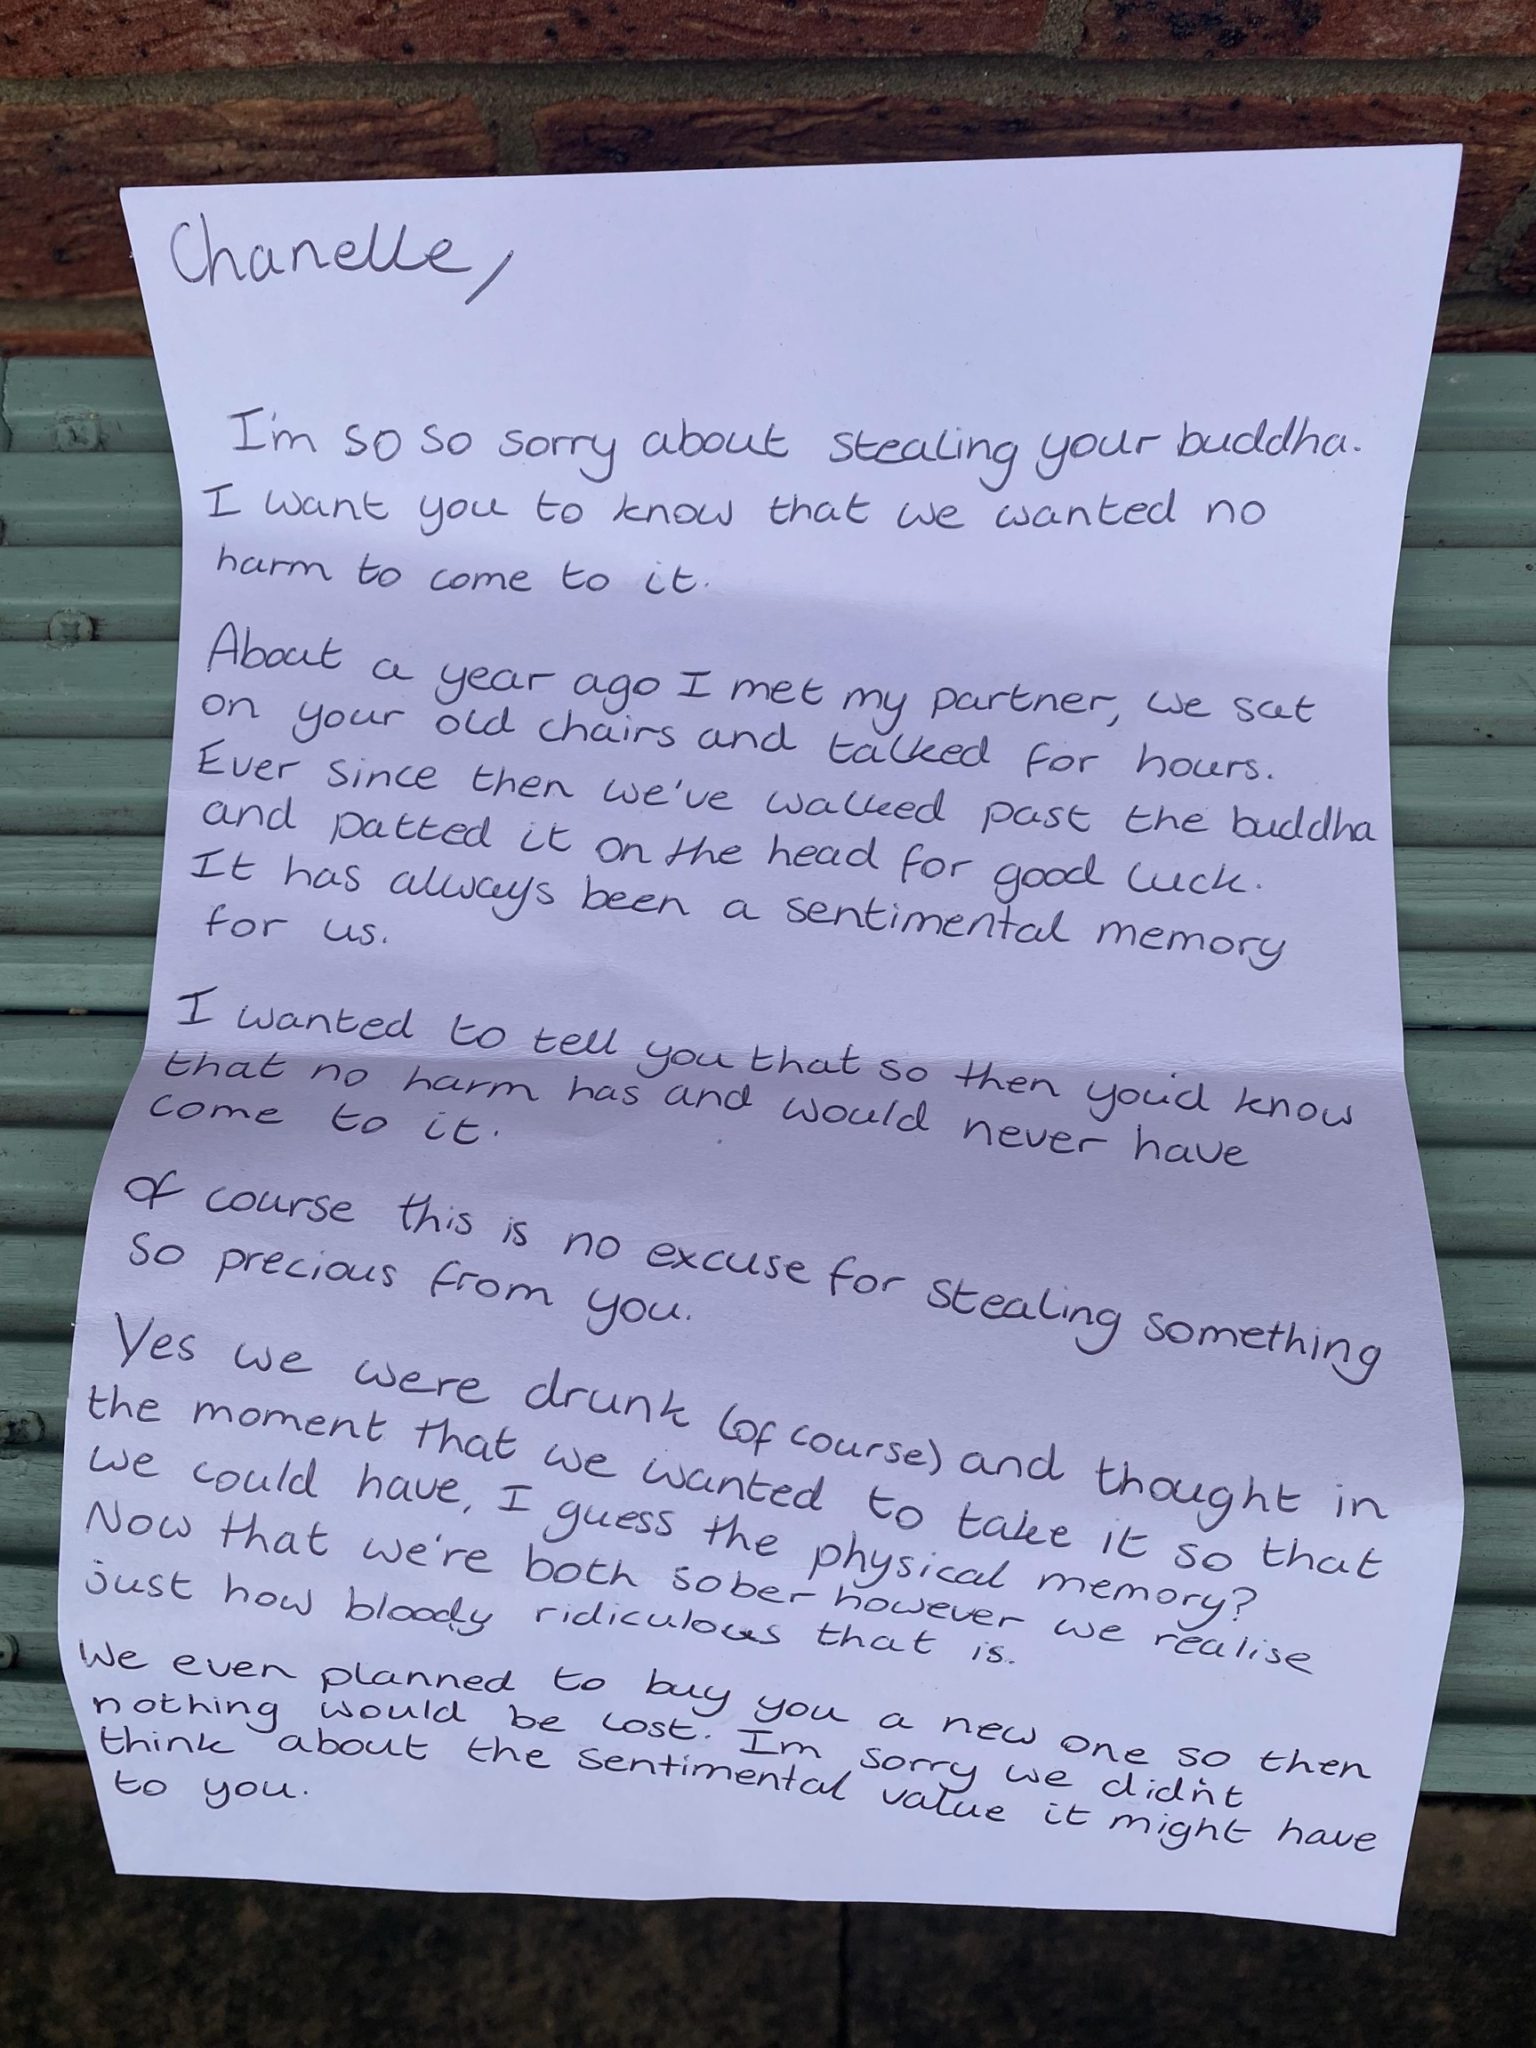 Chanelle,
I'm so so sorry about stealing your buddha.
I want you to know that we wanted no
harm to come to it.
About a year ago I met my partner, we sat
on your old chairs and talked for hours.
Ever since then we've walked past the buddha
and patted it on the head for good luck.
It has always been a sentimental memory
for us.
I wanted to tell you that so then you'd know
that no harm has and would never have
come to it.
Of course this is no excuse for stealing something
so precious from you.
Yes we were drunk (of course) and thought in
the moment that we wanted to take it so that
we could have, I guess the physical memory?
Now that we're both sober however we realise
just how bloody ridiculous that is.
We even planned to buy you a new one so then
nothing would be lost. I'm sorry we didn't
think about the sentimental value it might have
to you.